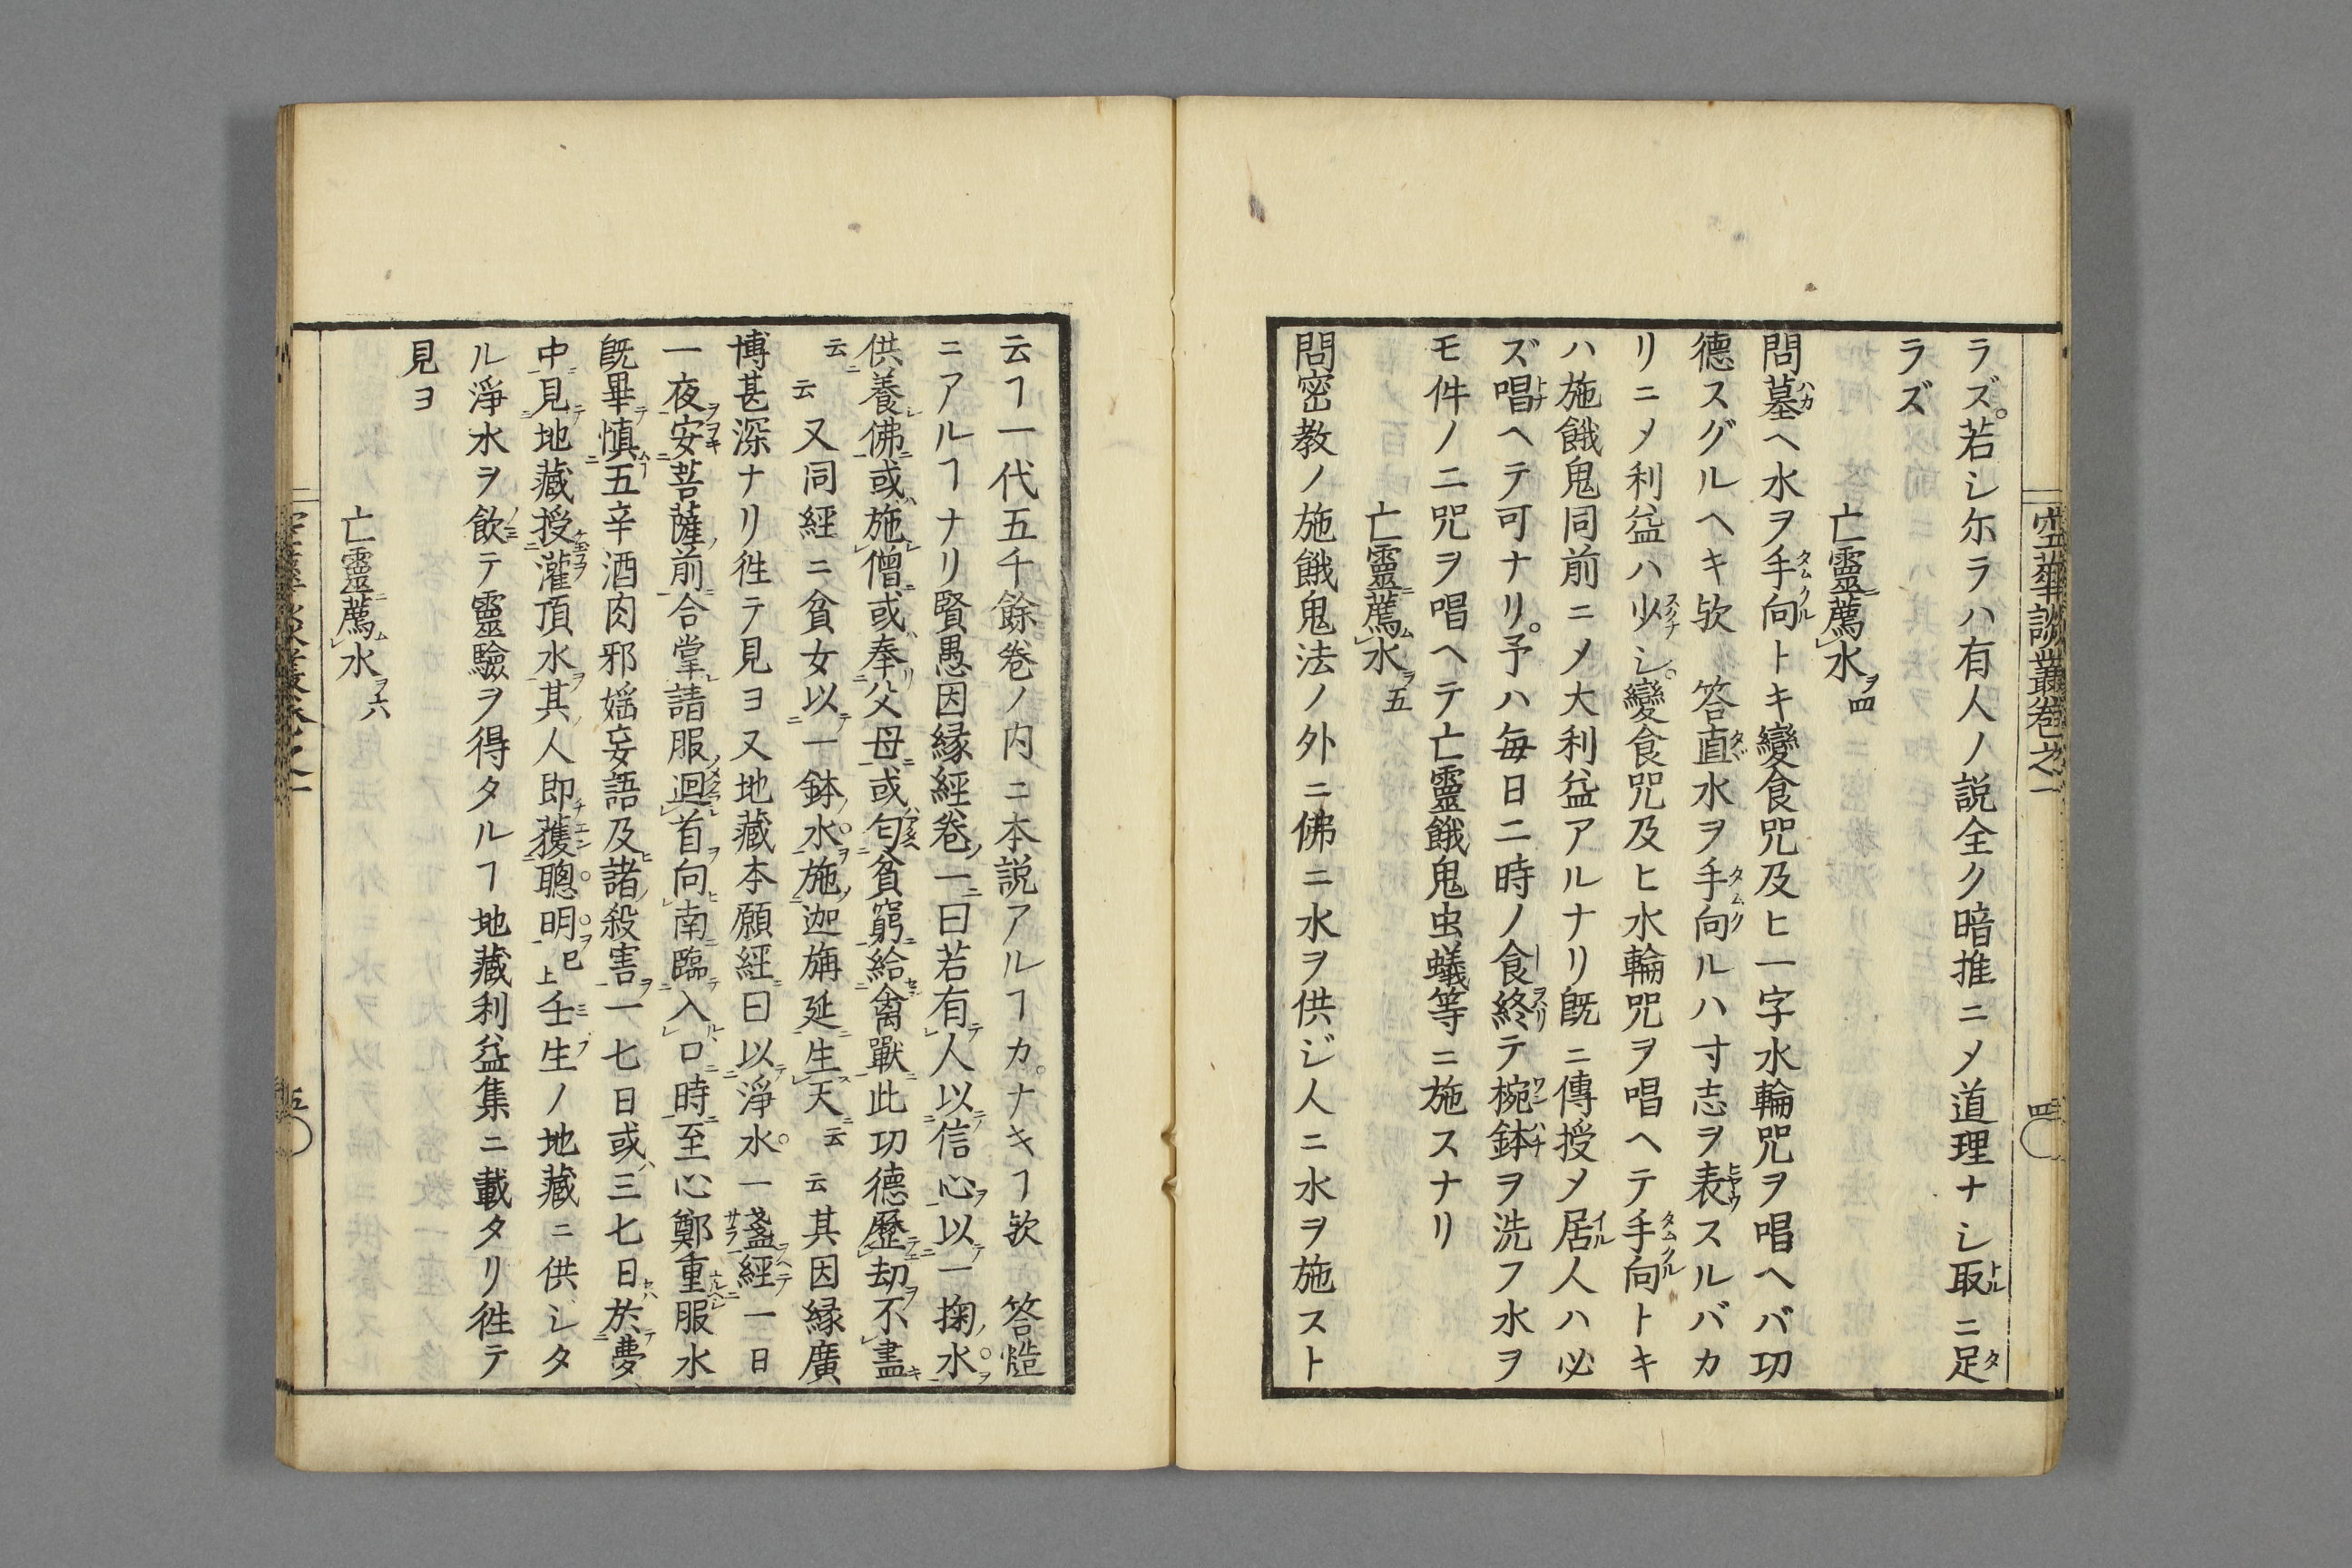 空華談叢卷之一
四
ラズ。若シ尓ラハ有人ノ説全ク暗推ニメ道理ナシ取ニ足
ラズ
亡靈ニ薦ム水ヲ四
問墓ヘ水ヲ手向トキ變食咒及ヒ一字水輪咒ヲ唱ヘバ功
德スグルヘキ欤 答直水ヲ手向ルハ寸志ヲ表スルバカ
リニメ利益ハ少シ。變食咒及ヒ水輪咒ヲ唱ヘテ手向トキ
ハ施餓鬼同前ニメ大利益アルナリ既ニ傳授メ居人ハ必
ズ唱ヘテ可ナリ。予ハ毎日二時ノ食終テ椀鉢ヲ洗フ水ヲ
モ件ノ二咒ヲ唱ヘテ亡靈餓鬼虫蟻等ニ施スナリ
亡靈ニ薦ム水ヲ五
問密教ノ施餓鬼法ノ外ニ佛ニ水ヲ供ジ人ニ水ヲ施スト
云ヿ一代五千餘卷ノ内ニ本説アルヿカ。ナキヿ欤 答慥
ニアルヿナリ賢愚因縁經卷一曰若有人以信心以一掬水
供養佛或施僧或奉父母或匃貧窮給禽獸此功德歷劫不盡
云云 又同經ニ貧女以一鉢水施迦旃延生天云云其因縁廣
博甚深ナリ徃テ見ヨ又地藏本願經曰以淨水一盞經一日
一夜安菩薩前合掌請服迴首向南臨入口時至心鄭重服水
既畢慎五辛酒肉邪婬妄語及諸殺害一七日或三七日於夢
中見地藏授灌頂水其人即獲聰明已上壬生ノ地藏ニ供シタ
ル淨水ヲ飲テ靈驗ヲ得タルヿ地藏利益集ニ載タリ徃テ
見ヨ
亡靈ニ薦ム水ヲ六
五